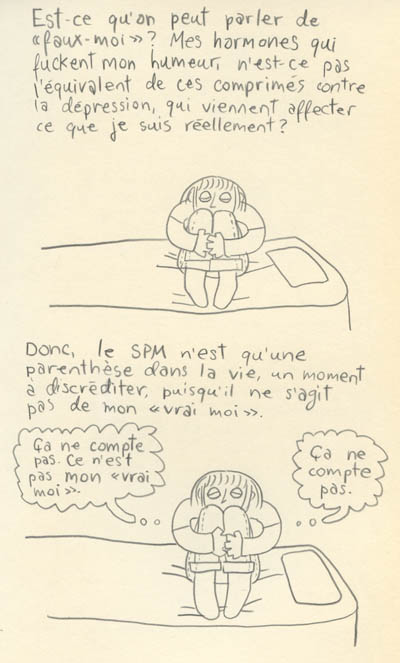 Est-ce qu'on peut parler de
«faux-moi»? Mes hormones qui
fuckent mon humeur, n'est-ce pas
l'équivalent de ces comprimés contre
la dépression, qui viennent affecter
ce que je suis réellement?
Donc, le SPM n'est qu'une
parenthèse dans la vie, un moment
à discréditer, puisqu'il ne s'agit
pas de mon «vrai moi».
Ça ne compte
pas. Ce n'est
pas mon «vrai
moi».
Ça ne
compte
pas.